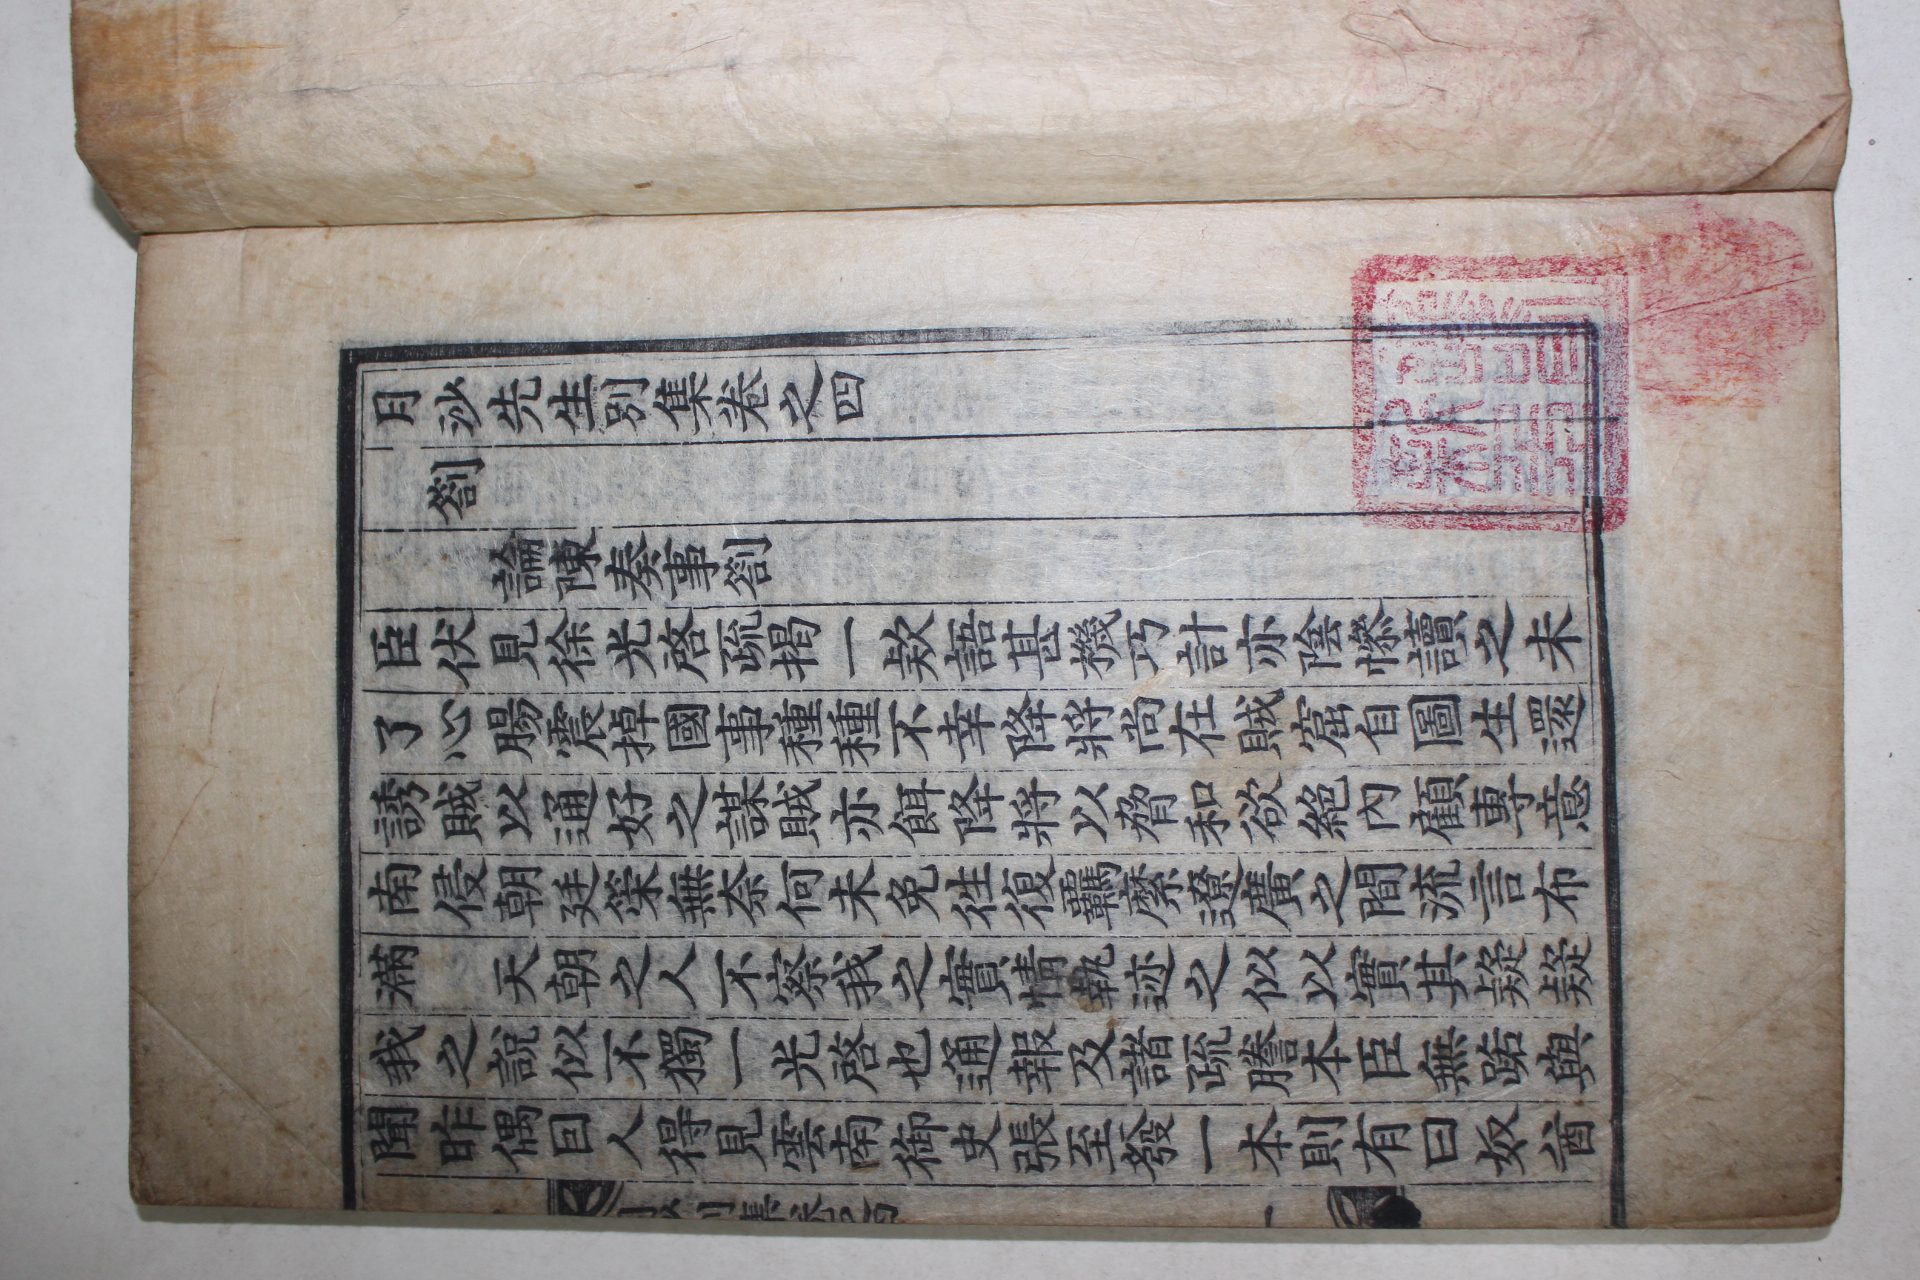 月沙先生別集卷之四
劄
論陳奏事劄
臣伏見徐光啓疏揭一欵語甚機巧計亦陰慘讀之未
了心腸震掉國事種種不幸降將尚在賊窟自圖生還
誘賊以通好之謀賊亦餌降將以脅和欲絕內顧專意
南侵朝廷策無奈何未免往復羈縻遼廣之間流言布
滿 天朝之人不察我之實情執迹之似以實其疑疑
我之說似不獨一光啓也通報及諸疏謄本臣無路與
聞昨偶因人得見雲南御史張至發一本則有曰奴酋